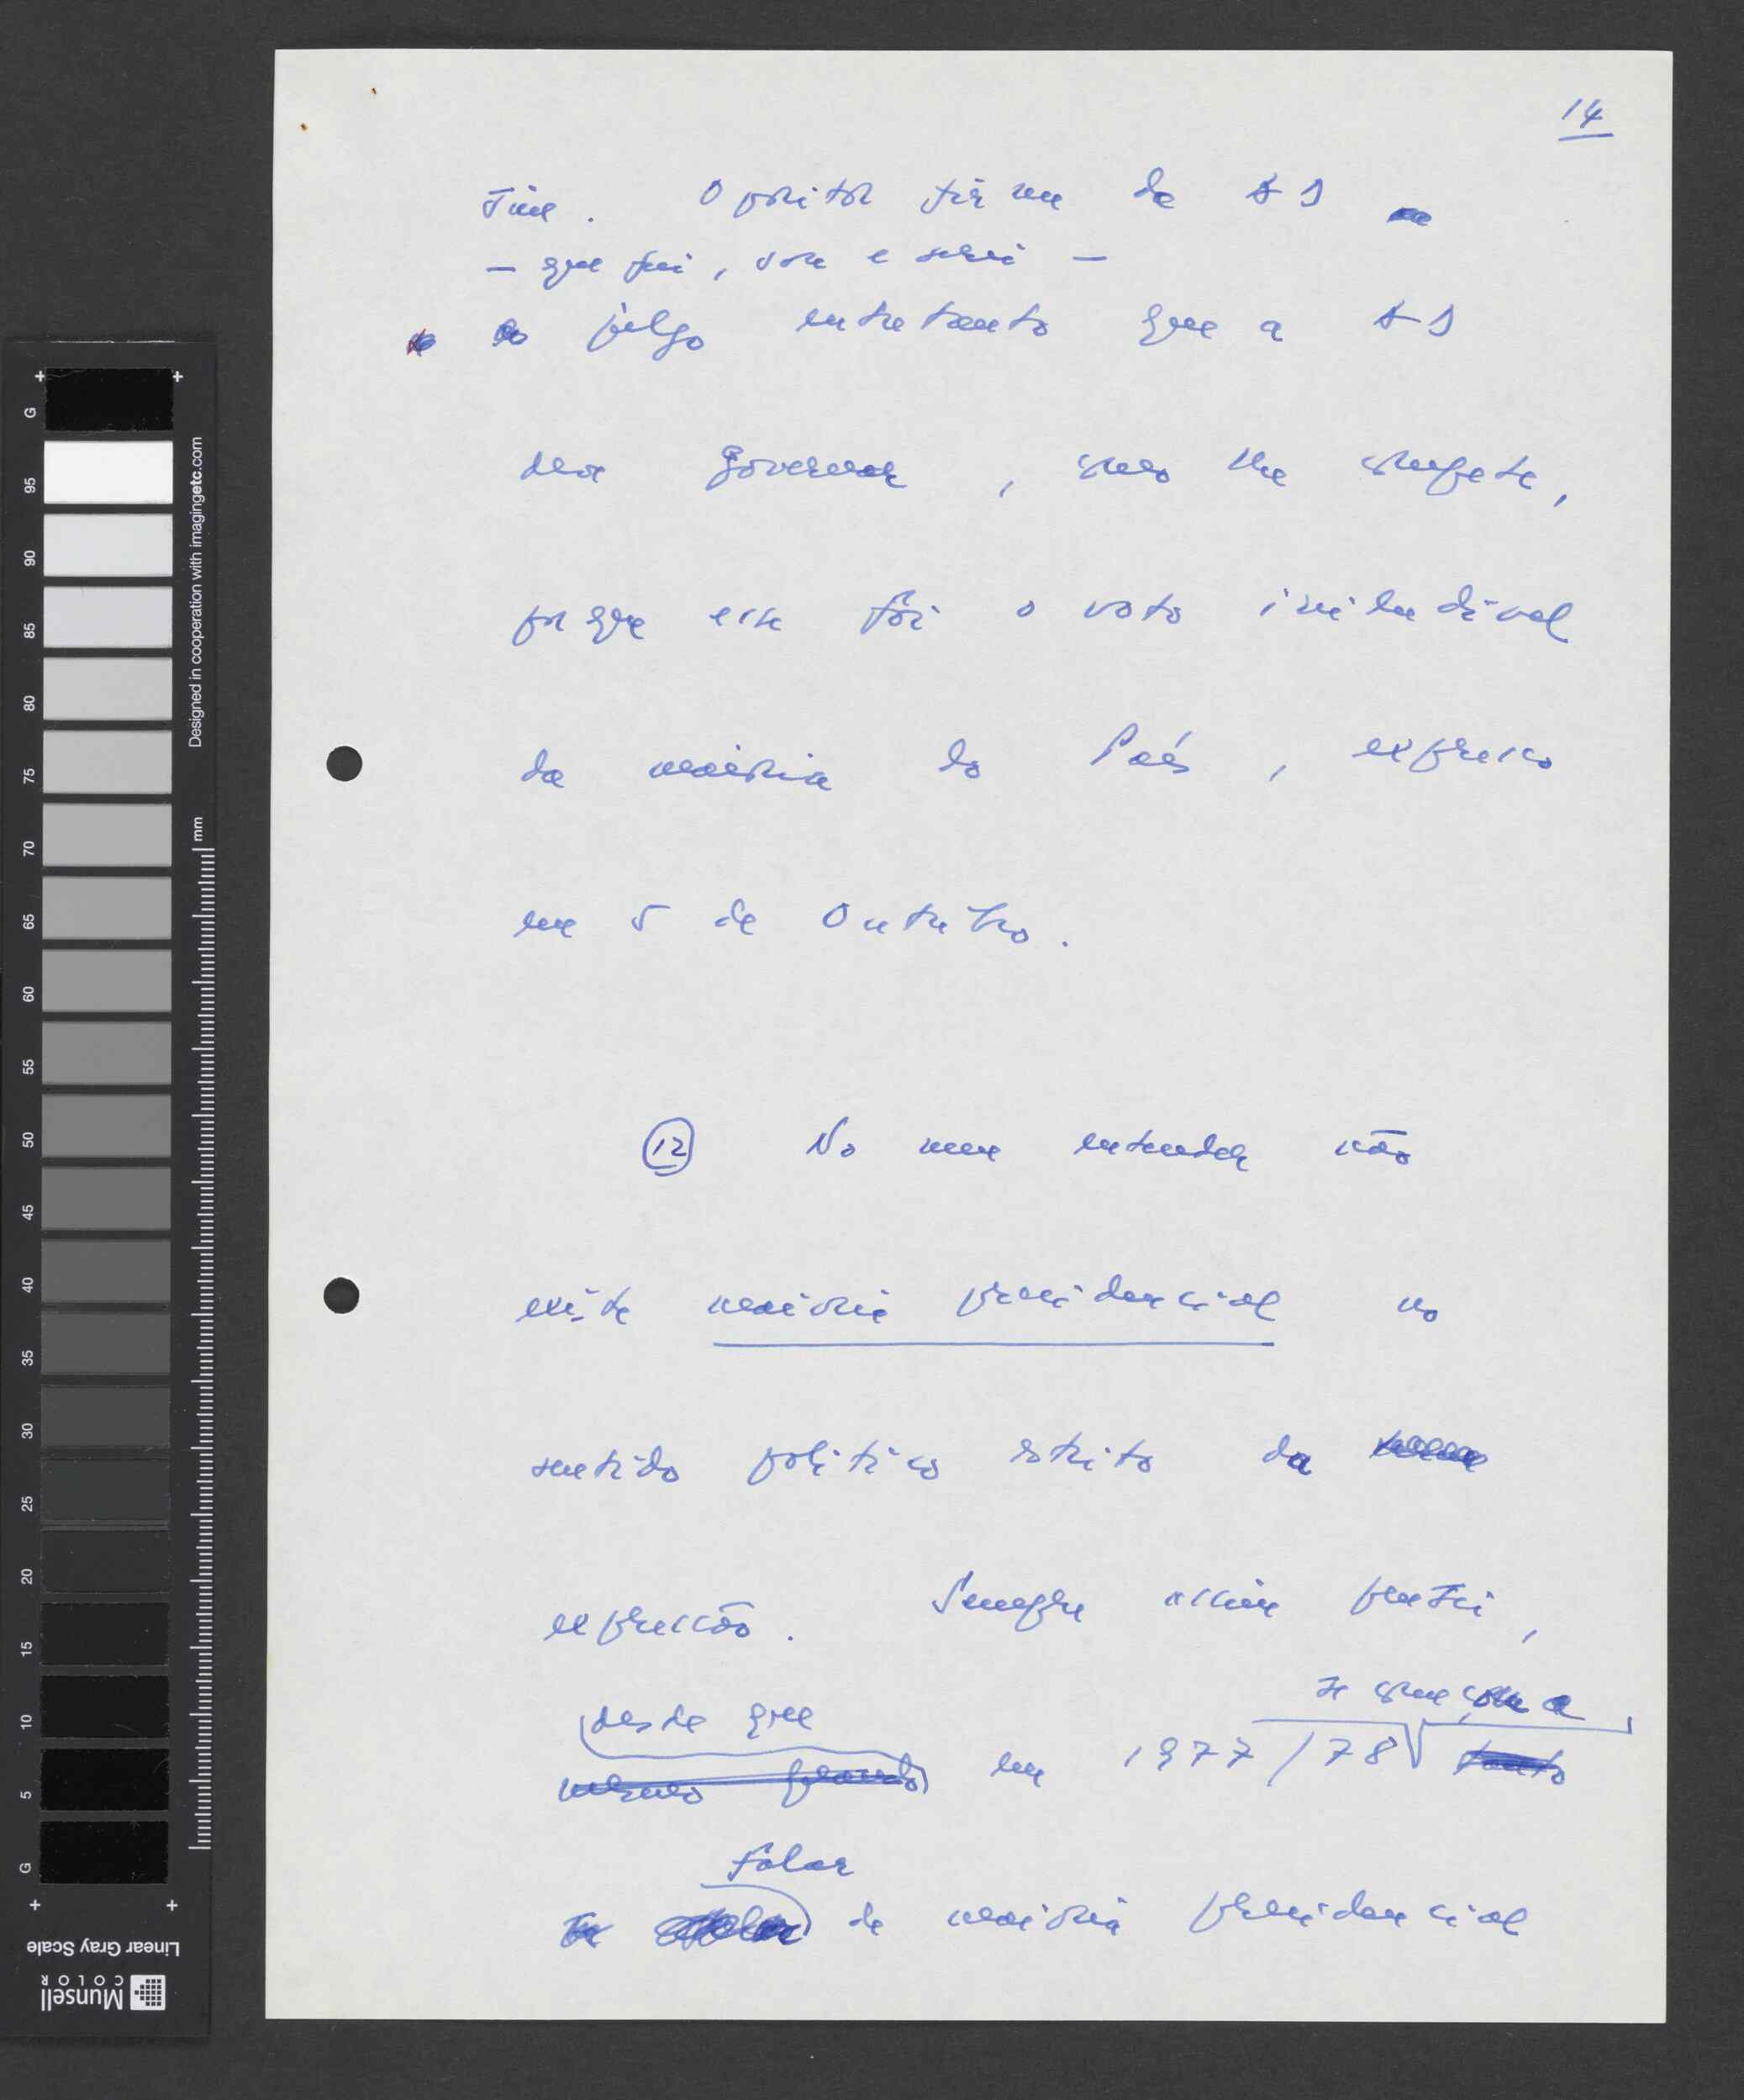 14
time. Opositor firme da AD
— que fui, sou e serei —
julgo entretanto que a AD
deve governar, como lhe compete,
porque esse foi o voto iniludível
da maioria do País, expresso
em 5 de Outubro.
12 No meu entender não
existe maioria presidencial no
sentido político estrito da
expressão. Sempre assim pensei,
se começou a
desde que
mesmo quando em 1977/78 tanto
falar
se de maioria presidencial
G
95
90
85
80
75
70
65
60
55
50
45
40
35
30
25
20
15
10
5
G
Designed in cooperation with imagingetc.com
mm
Linear Gray Scale
Munsell
COLOR